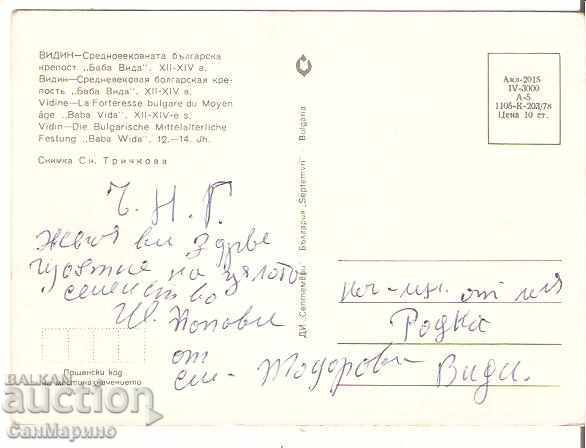 ВИДИН—Средновековната българска
крепост „Баба Вида". XII-XIV в.
Видин—Средневековая болгарская кре-
пость „Баба Вида". XII-XIV в.
Vidine—La Forteresse bulgare du Moyen
âge „Baba Vida". XII-XIV-e s.
Vidin—Die Bulgarische Mittelalterliche
Festung „Baba Wida". 12.—14. Jh.
Снимка Сн. Тричкова
Ч. Н. Г.
ви здраве
щастие на цялото
семейство
Попови
от
Тодорови
ДИ „Септември" България „Septemvri" Bulgaria
Ажл-2015
IV-3000
А-5
1105-К-20Д/78
Цена 10 ст.
от
Радка
Види.
Пощенски код
на местоназначението
BALKAN
auction
СанМарино